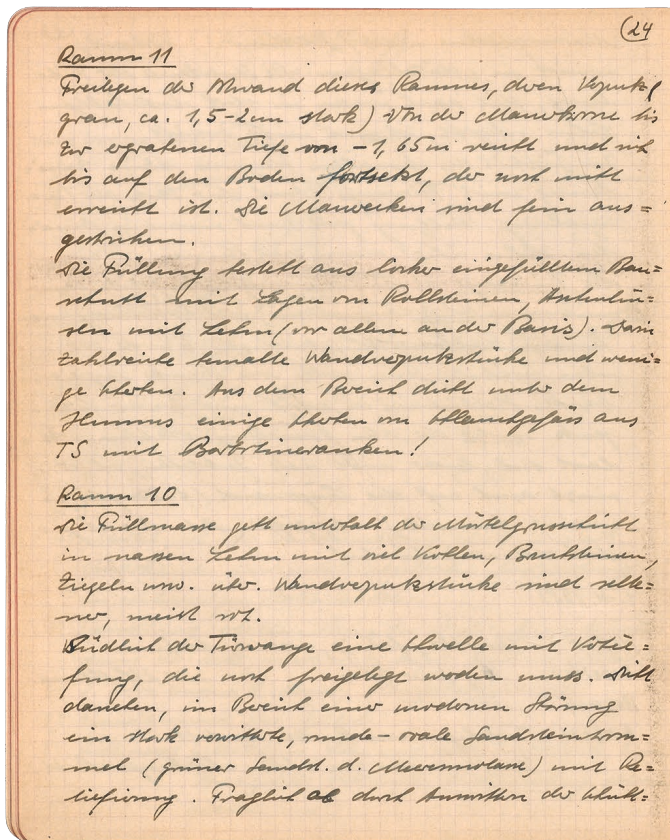 (24
Raum 11
Freilegen der Nwand dieses Raumes, deren Verputz (
grau, ca. 1,5-2cm stark) von der Mauerkrone bis
zur ergrabenen Tiefe von - 1,65m reicht und sich
bis auf den Boden fortsetzt, der noch nicht
erreicht ist. Die Mauerecken sind fein aus=
gestrichen.
Die Füllung besteht aus locker eingefülltem Bau=
schutt mit Lagen von Rollsteinen, Aschenlin=
sen mit Lehm (vor allem an der Basis). Darin
zahlreiche bemalte Wandverputzstücke und weni=
ge Scherben. Aus dem Bereich dicht unter dem
Humus einige Scherben von aus
TS mit Barbotineranken!
Raum 10
Die Füllmasse geht unterhalb der Mörtelgussschicht
in nassen Lehm mit viel Kohlen, Bruchsteinen,
Ziegeln usw. über. Wandverputzstücke sind selte=
ner, meist rot.
Südlich der Türwange eine Schwelle mit Vertie=
fung, die noch freigelegt werden muss. Dicht
daneben, im Bereich einer modernen Störung
ein stark verwitterte, runde - ovale Sandsteintrom=
mel (grüner Sandst. d. Meeresmolasse) mit Re=
liefierung. Fraglich ob durch Auswittern der Schich=